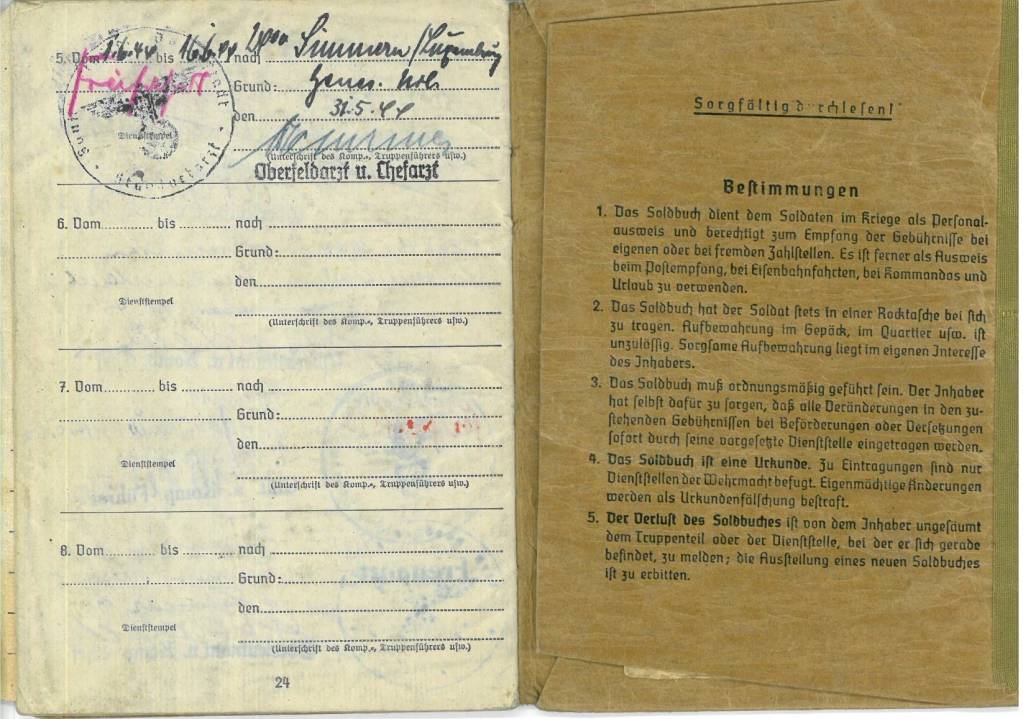 5. Vom 1.6.44 bis 16.6.44 24°° nach Simmern / Luxemburg
Freifahrt
Grund: Genes. Url.
den 31.5.44
Dienststempel
(Unterschrift des Komp.-, Truppenführers usw.)
Oberfeldarzt u. Chefarzt
6. Vom bis nach
Grund:
den
Dienststempel
(Unterschrift des Komp.-, Truppenführers usw.)
7. Vom bis nach
Grund:
den
Dienststempel
(Unterschrift des Komp.-, Truppenführers usw.)
8. Vom bis nach
Grund:
den
Dienststempel
(Unterschrift des Komp.-, Truppenführers usw.)
24
Sorgfältig durchlesen!
Bestimmungen
1. Das Soldbuch dient dem Soldaten im Kriege als Personal-
ausweis und berechtigt zum Empfang der Gebührnisse bei
eigenen oder bei fremden Zahlstellen. Es ist ferner als Ausweis
beim Postempfang, bei Eisenbahnfahrten, bei Kommandos und
Urlaub zu verwenden.
2. Das Soldbuch hat der Soldat stets in einer Rocktasche bei sich
zu tragen. Aufbewahrung im Gepäck, im Quartier usw. ist
unzulässig. Sorgsame Aufbewahrung liegt im eigenen Interesse
des Inhabers.
3. Das Soldbuch muß ordnungsmäßig geführt sein. Der Inhaber
hat selbst dafür zu sorgen, daß alle Veränderungen in den zu-
stehenden Gebührnissen bei Beförderungen oder Versetzungen
sofort durch seine vorgesetzte Dienststelle eingetragen werden.
4. Das Soldbuch ist eine Urkunde. Zu Eintragungen sind nur
Dienststellen der Wehrmacht befugt. Eigenmächtige Änderungen
werden als Urkundenfälschung bestraft.
5. Der Verlust des Soldbuches ist von dem Inhaber ungesäumt
dem Truppenteil oder der Dienststelle, bei der er sich gerade
befindet, zu melden; die Ausstellung eines neuen Soldbuches
ist zu erbitten.